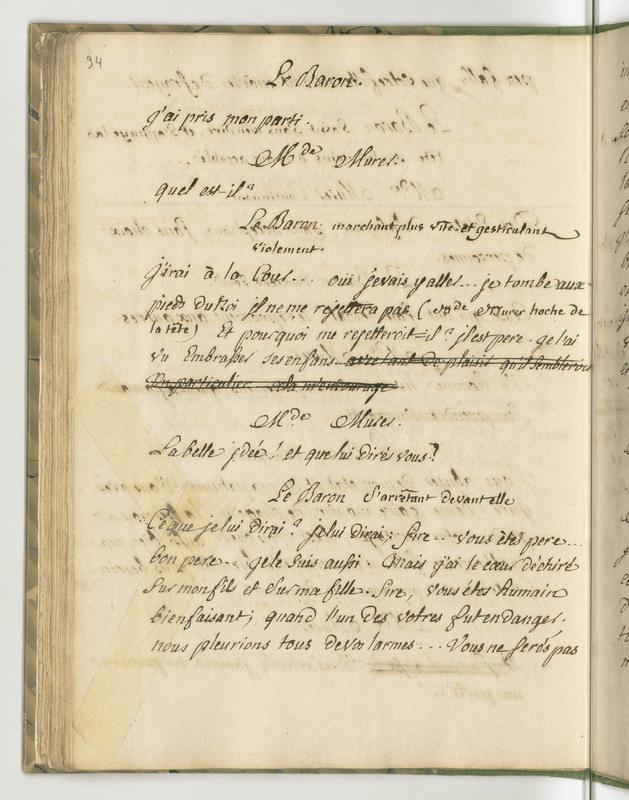 94
Le Baron.
j'ai pris mon parti.
Mde Murer.
quel est-il?
Le Baron, marchant plus vite et gesticulant
violement.
j'irai à la Cour... oui je vais y aller... je tombe aux
pieds du Roi il ne me rejettera pas (Mde Murer hoche de
la tête) Et pourquoi me rejetteroit-il? il est pere. je l'ai
vu Embrasser ses enfans avec tant de plaisir qu'il sembleroit
Un particulier cela m'encourage
Mde Murer.
La belle idée! et que lui dirés vous?
Le Baron s'arrêtant devant elle
Ce que je lui dirai? je lui dirai; Sire... vous êtes pere...
bon pere... je le suis aussi. Mais j'ai le cœur déchiré
Sur mon fils et Sur ma fille. Sire, vous êtes humain
bienfaisant; quand l'un des votres fut en danger.
nous pleurions tous de vos larmes... Vous ne serés pas